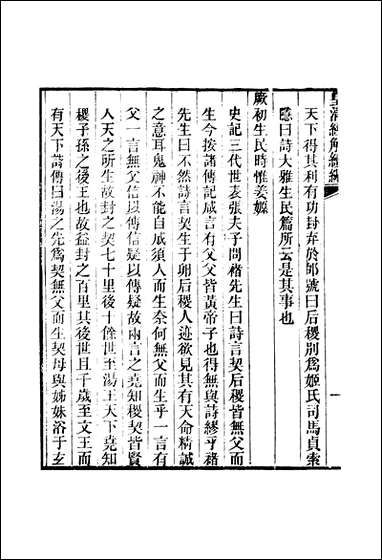 皇清經解續編
天下得其利有功封弃於邰號曰后稷別爲姬氏司馬貞索
隱曰詩大雅生民篇所云是其事也
厥初生民時惟姜嫄
史記三代世表張夫子問褚先生曰詩言契后稷皆無父而
生今按諸傳記咸言有父父皆黃帝子也得無與詩繆乎褚
先生曰不然詩言契生于卵后稷人迹欲見其有天命精誠
之意耳鬼神不能自成須人而生奈何無父而生乎一言有
父一言無父信以傳信疑以傳疑故兩言之堯知稷契皆賢
人天之所生故封之契七十里後十餘世至湯王天下堯知
稷子孫之後王也故益封之百里其後世且千歲至文王而
有天下詩傳曰湯之先爲契無父而生契母與姊妹浴于玄